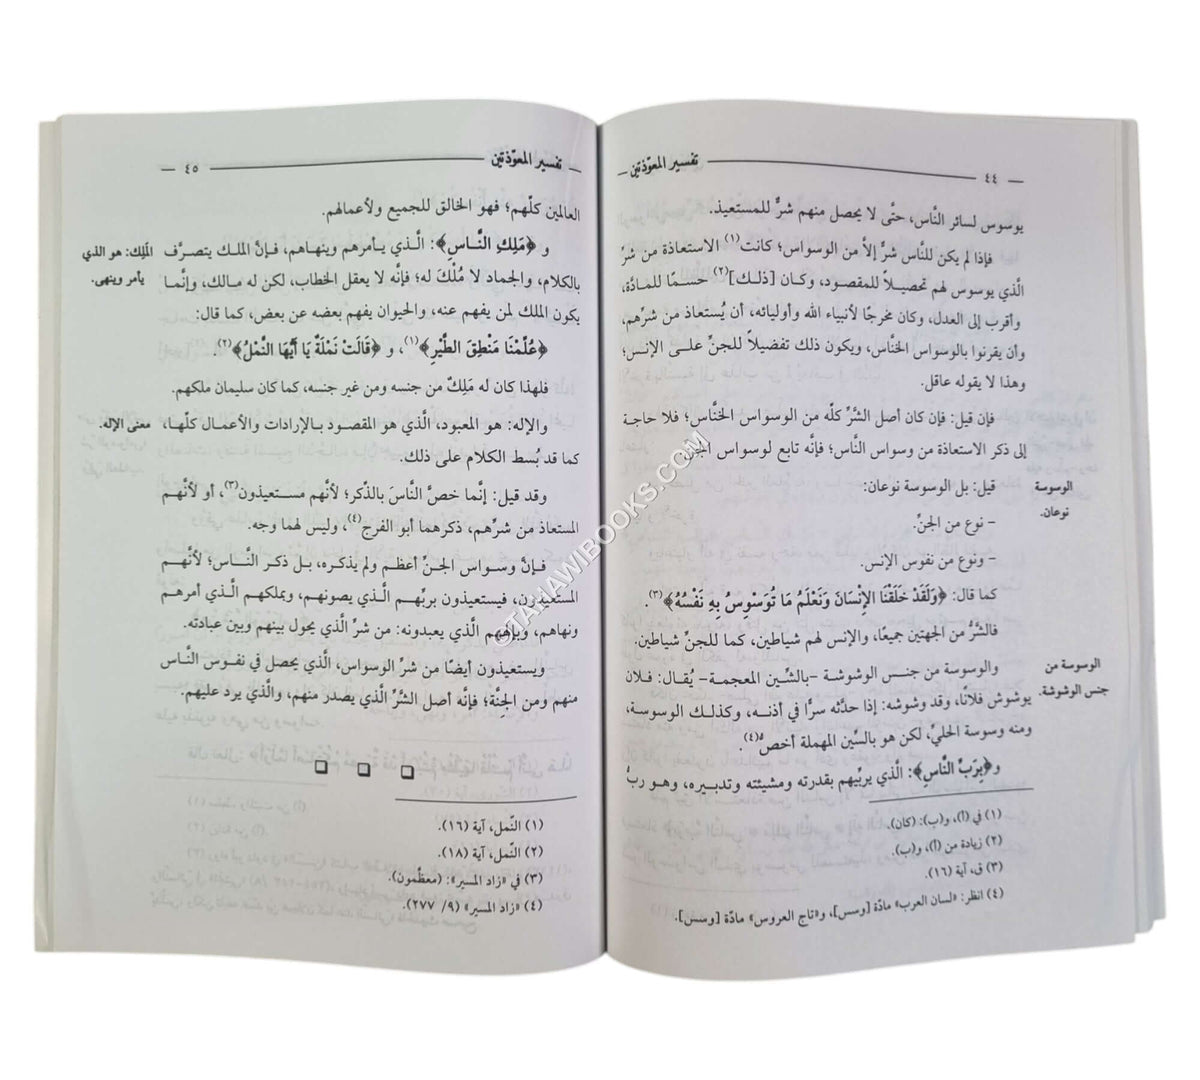 تفسير المعوّذتين
٤٤
يوسوس لسائر النَّاس، حتَّى لا يحصل منهم شرٌّ للمستعيذ.
فإذا لم يكن للنَّاس شرٌّ إلاَّ من الوسواس؛ كانت(١) الاستعاذة من شرِّ
الَّذي يوسوس لهم تحصيلاً للمقصود، وكان [ذلك](٢) حسمًا للمادَّة،
وأقرب إلى العدل، وكان مخرجًا لأنبياء الله وأوليائه، أن يُستعاذ من شرِّهم،
وأن يقرنوا بالوسواس الخنَّاس، ويكون ذلك تفضيلاً للجنِّ على الإنس؛
وهذا لا يقوله عاقل.
فإن قيل: فإن كان أصل الشَّرِّ كلّه من الوسواس الخنَّاس؛ فلا حاجة
إلى ذكر الاستعاذة من وسواس النَّاس؛ فإنَّه تابع لوسواس الجنِّ.
قيل: بل الوسوسة نوعان:
الوسوسة
نوعان.
– نوع من الجنِّ.
– ونوع من نفوس الإنس.
كما قال: ﴿وَلَقَدْ خَلَقْنَا الإِنْسَانَ وَنَعْلَمُ مَا تُوَسْوِسُ بِهِ نَفْسُهُ﴾(٣).
فالشَّرُّ من الجهتين جميعًا، والإنس لهم شياطين، كما للجنِّ شياطين.
والوسوسة من جنس الوشوشة –بالشِّين المعجمة– يُقال: فلان
الوسوسة من
جنس الوشوشة.
يوشوش فلانًا، وقد وشوشه: إذا حدَّثه سرًّا في أذنه، وكذلك الوسوسة،
ومنه وسوسة الحليّ، لكن هو بالسِّين المهملة أخص٥(٤).
و﴿بِرَبِّ النَّاسِ﴾: الَّذي يربِّيهم بقدرته ومشيئته وتدبيره، وهو ربُّ
(١) في (أ)، و(ب): (كان).
(٢) زيادة من (أ)، و(ب).
(٣) ق، آية (١٦).
(٤) انظر: «لسان العرب» مادّة [وسس]، و«تاج العروس» مادّة [وسس].
تفسير المعوّذتين
٤٥
العالمين كلّهم؛ فهو الخالق للجميع ولأعمالهم.
و ﴿مَلِكِ النَّاسِ﴾: الَّذي يأمرهم وينهاهم، فإنَّ الملك يتصرَّف
الملِك: هو الذي
يأمر وينهى.
بالكلام، والجماد لا مُلْكَ له؛ فإنَّه لا يعقل الخطاب، لكن له مالك، وإنَّما
يكون الملك لمن يفهم عنه، والحيوان يفهم بعضه عن بعض، كما قال:
﴿عُلِّمْنَا مَنْطِقَ الطَّيْرِ﴾(١)، و ﴿قَالَتْ نَمْلَةٌ يَا أَيُّهَا النَّمْلُ﴾(٢).
فلهذا كان له مَلِكٌ من جنسه ومن غير جنسه، كما كان سليمان ملكهم.
والإله: هو المعبود، الَّذي هو المقصود بالإرادات والأعمال كلّها،
معنى الإله.
كما قد بُسط الكلام على ذلك.
وقد قيل: إنَّما خصَّ النَّاسَ بالذِّكر؛ لأنَّهم مستعيذون(٣)، أو لأنَّهم
المستعاذ من شرِّهم، ذكرهما أبو الفرج(٤)، وليس لهما وجه.
فإنَّ وسواس الجنِّ أعظم ولم يذكره، بل ذكر النَّاس؛ لأنَّهم
المستعيذون، فيستعيذون بربِّهم الَّذي يصونهم، وبملكهم الَّذي أمرهم
ونهاهم، وبإلههم الَّذي يعبدونه: من شرِّ الَّذي يحول بينهم وبين عبادته.
ويستعيذون أيضًا من شرِّ الوسواس، الَّذي يحصل في نفوس النَّاس
منهم ومن الجِنَّة؛ فإنَّه أصل الشَّرِّ الَّذي يصدر منهم، والَّذي يرد عليهم.
(١) النَّمل، آية (١٦).
(٢) النَّمل، آية (١٨).
(٣) في «زاد المسير»: (معظَّمون).
(٤) «زاد المسير» (٩/ ٢٧٧).
TAHAWIBOOKS.COM